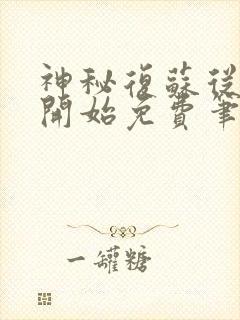 神秘復蘇從
開始免費筆
一罐糖